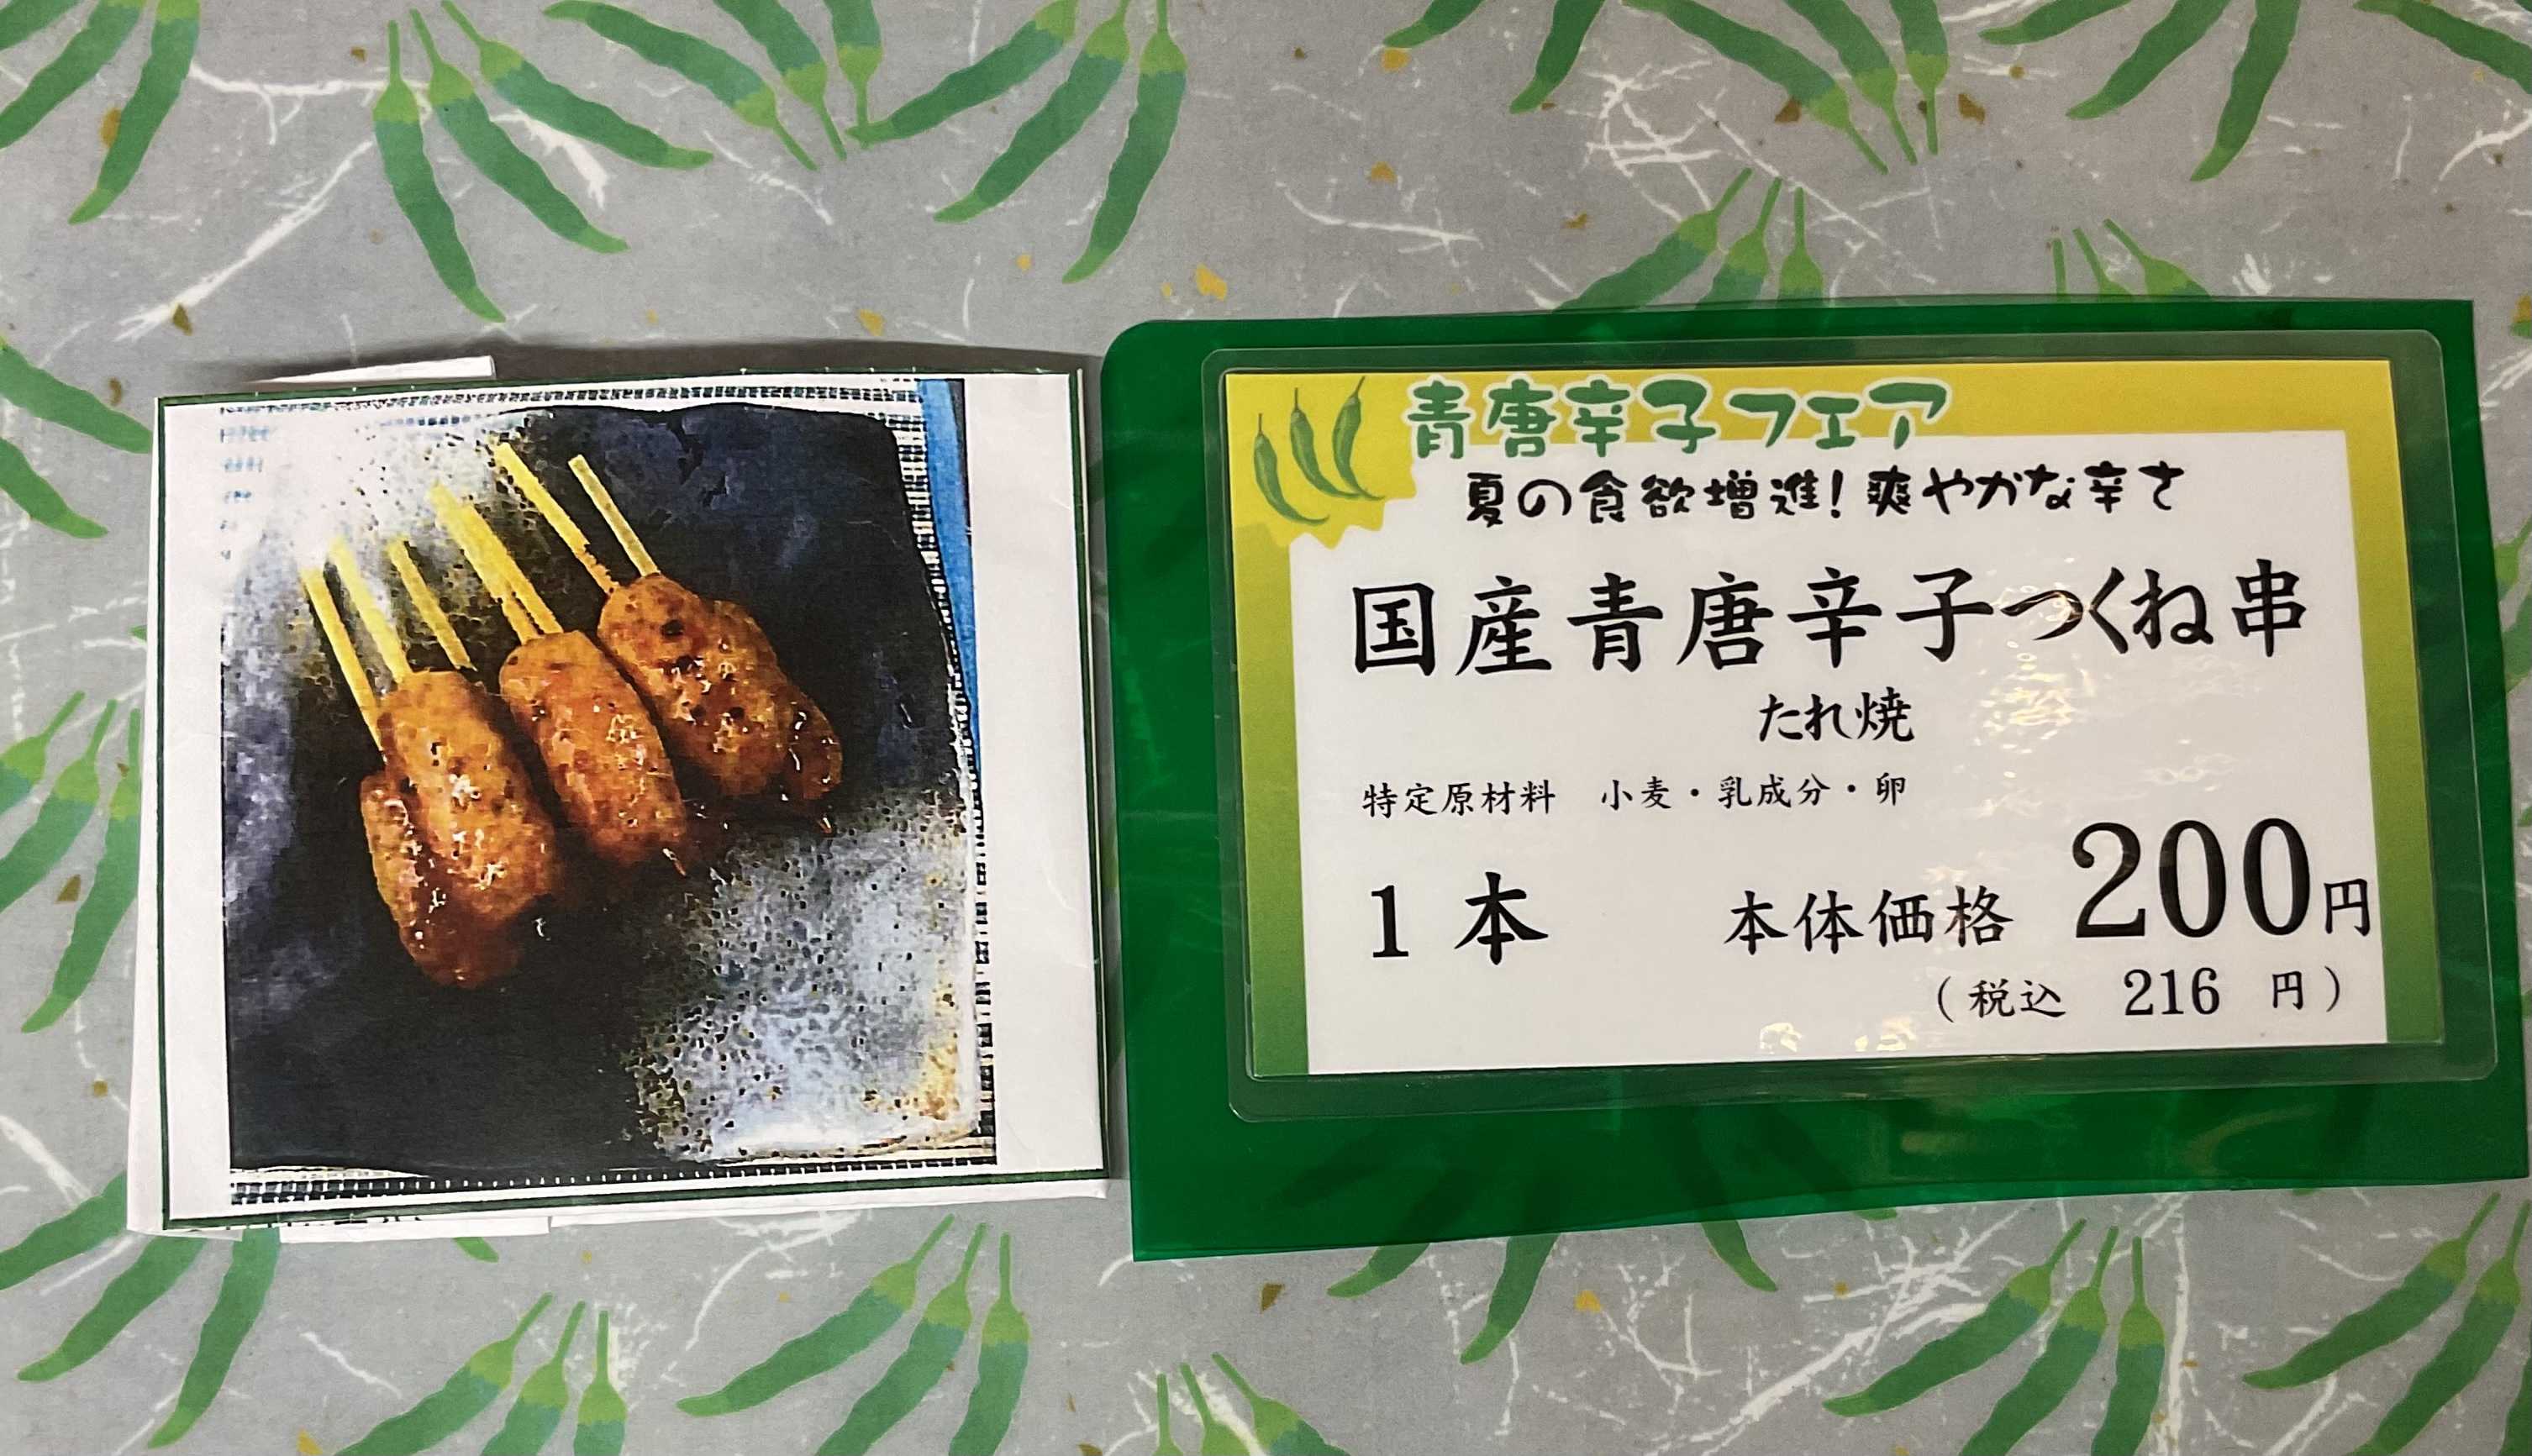 青唐辛子フェア
夏の食欲増進！爽やかな辛さ
国産青唐辛子つくね串
たれ焼
特定原材料　小麦・乳成分・卵
1本　本体価格　200円
（税込　216　円）